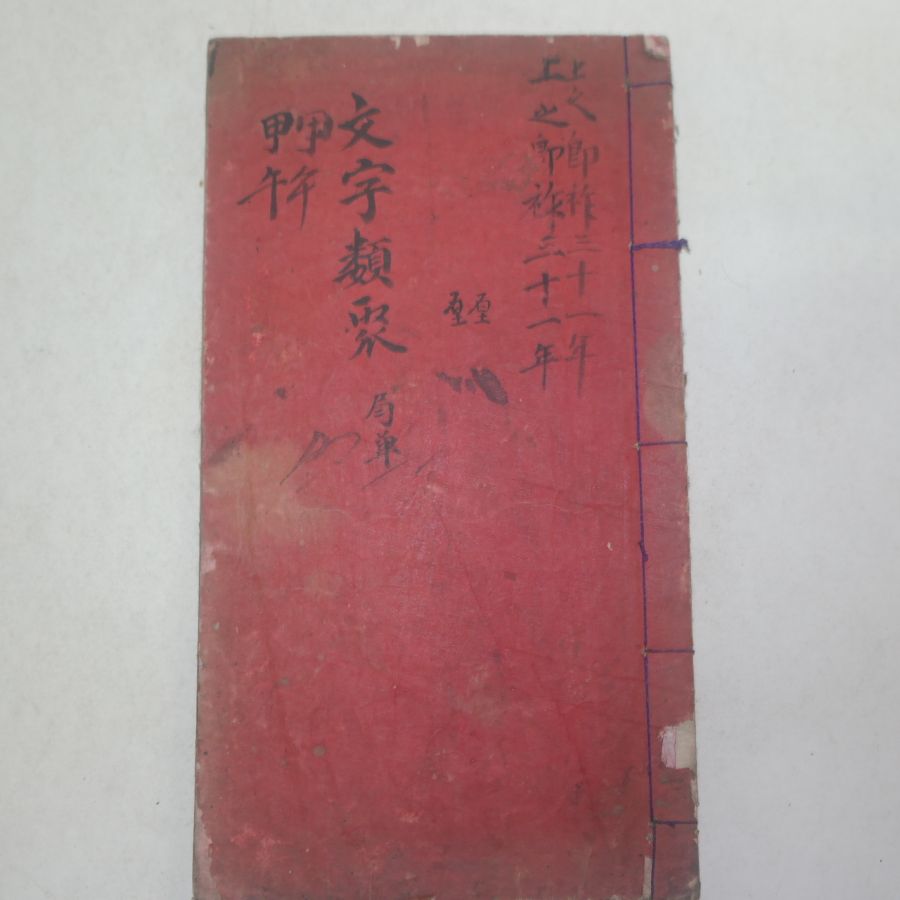 上之卽祚三十一年
上之卽祚三十一年
文字類聚
甲午
甲午